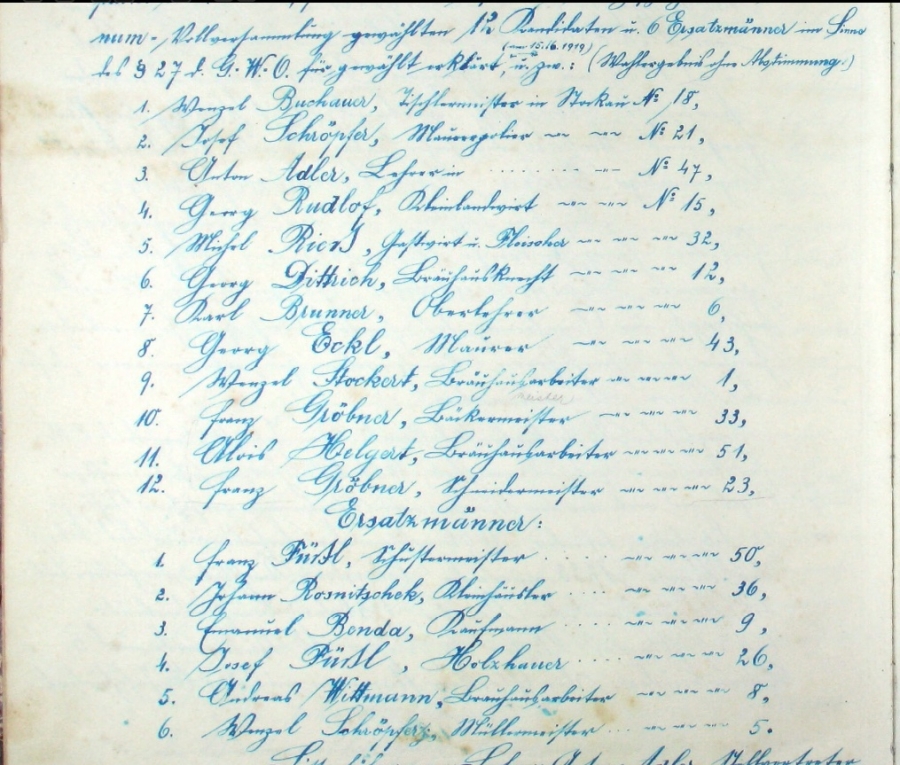 num-Vollversammlung gewählten 12 Kandidaten u. 6 Ersatzmänner im Sinne
(am 15./6. 1919)
des § 27 d. G. W. O. für gewählt erklärt, u. zw.: (Wahlergebnis ohne Abstimmung.)
1. Wenzel Buchauer, Tischlermeister in Stockau No 18,
2. Josef Schröpfer, Maurerpolier " " No 21,
3. Anton Adler, Lehrer in ........ " No 47,
4. Georg Rudlof, Kleinlandwirt " " No 15,
5. Michel Rierl, Gastwirt u. Fleischer " " " 32,
6. Georg Dittrich, Bräuhausknecht " " " 12,
7. Karl Brunner, Oberlehrer " " " 6,
8. Georg Eckl, Maurer " " " 43,
9. Wenzel Stockert, Bräuhausarbeiter " " " 1,
meister
10. Franz Gröbner, Bäckermeister " " " 33,
11. Alois Helgert, Bräuhausarbeiter " " " 51,
12. Franz Gröbner, Schneidermeister " " " 23,
Ersatzmänner:
1. Franz Füßl, Schustermeister .... " " " 50,
2. Johann Rosnitschek, Kleinhäusler .... " " " 36,
3. Emanuel Benda, Kaufmann ..... " " " 9,
4. Josef Füßl, Holzhauer .... " " " 26,
5. Andreas Wittmann, Bräuhausarbeiter " " " 8,
6. Wenzel Schröpfer, Müllermeister ... " " " 5.
Lehrer Anton Adler, Stellvertreter